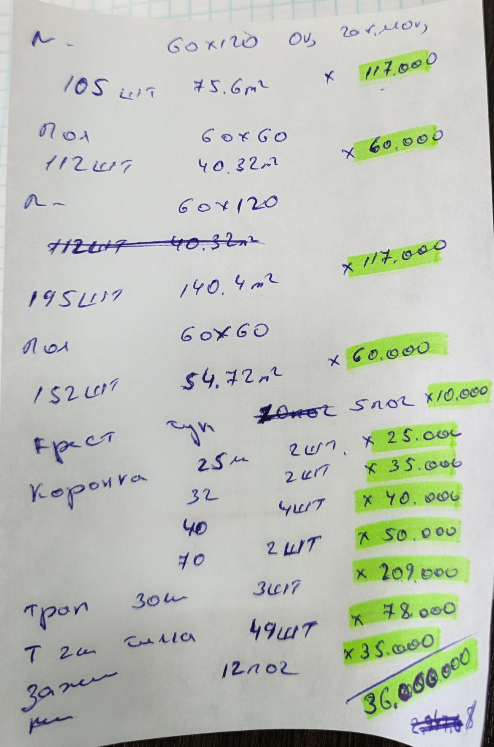 60x120
105 шт 75.6м² x 117.000
Пол 60x60
112шт 40.32м² x 60.000
60x120
112шт 40.32м²
195шт 140.4м² x 117.000
Пол 60x60
152шт 54.72м² x 60.000
Крест 5пос x10.000
Коронка 25м 2шт. x 25.000
32 2шт x 35.000
40 4шт x 40.000
70 2шт x 50.000
Трап 30ш 3шт x 209.000
Т 2ш 49шт x 78.000
Зажим 12пос x35.000
36.000.000